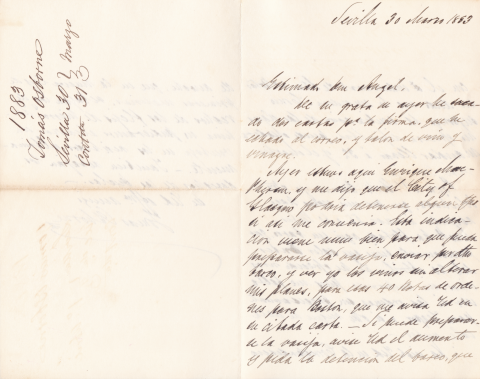 1883
Tomás Osborne
Sevilla 30 Marzo
Conton 31
Sevilla 30 Marzo 1883
Estimado Don Angel.
De su grata de ayer he sacado
dos cartas pª la firma, que he
echado al correo, y talon de vino y
vinagre.
Ayer estuvo aqui Enrique Mac-
Pherson, y me dijo que el City of
Glasgow podria detenerse algun dia
si asi me convenia. Esta indica-
cion viene muy bien para que pueda
prepararse la vasija, enviar por dho
barco, y ver yo los vinos sin alterar
mis planes, para esas 40 Botas de orde-
nes para Boston, que me avisa Ud en
su citada carta. — Si puede preparar-
se la vasija, avise Ud el aumento
y pida la detencion del barco, que